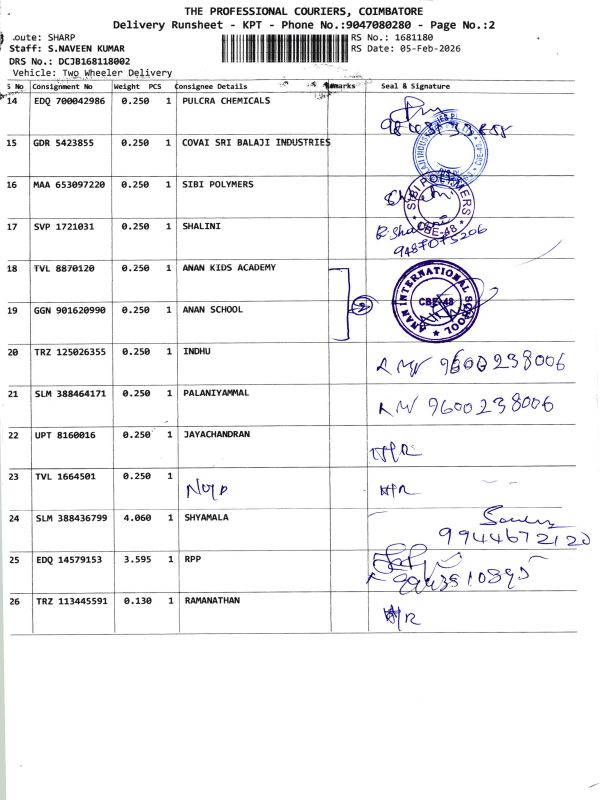 THE PROFESSIONAL COURIERS, COIMBATORE
Delivery Runsheet - KPT - Phone No.:9047080280 - Page No.:2
oute: SHARP
RS No.: 1681180
Staff: S.NAVEEN KUMAR
RS Date: 05-Feb-2026
DRS No.: DCJB168118002
Vehicle: Two Wheeler Delivery
S No Consignment No Weight PCS Consignee Details marks Seal & Signature
14 EDQ 700042986 0.250 1 PULCRA CHEMICALS
15 GDR 5423855 0.250 1 COVAI SRI BALAJI INDUSTRIES
16 MAA 653097220 0.250 1 SIBI POLYMERS
SIBI POLYMERS
CBE-48
17 SVP 1721031 0.250 1 SHALINI
9487075206
18 TVL 8870120 0.250 1 ANAN KIDS ACADEMY
ANAN INTERNATIONAL SCHOOL
CBE-48
2
19 GGN 901620990 0.250 1 ANAN SCHOOL
20 TRZ 125026355 0.250 1 INDHU 9600238006
21 SLM 388464171 0.250 1 PALANIYAMMAL 9600238006
22 UPT 8160016 0.250 1 JAYACHANDRAN
23 TVL 1664501 0.250 1
24 SLM 388436799 4.060 1 SHYAMALA
9944672120
25 EDQ 14579153 3.595 1 RPP
26 TRZ 113445591 0.130 1 RAMANATHAN